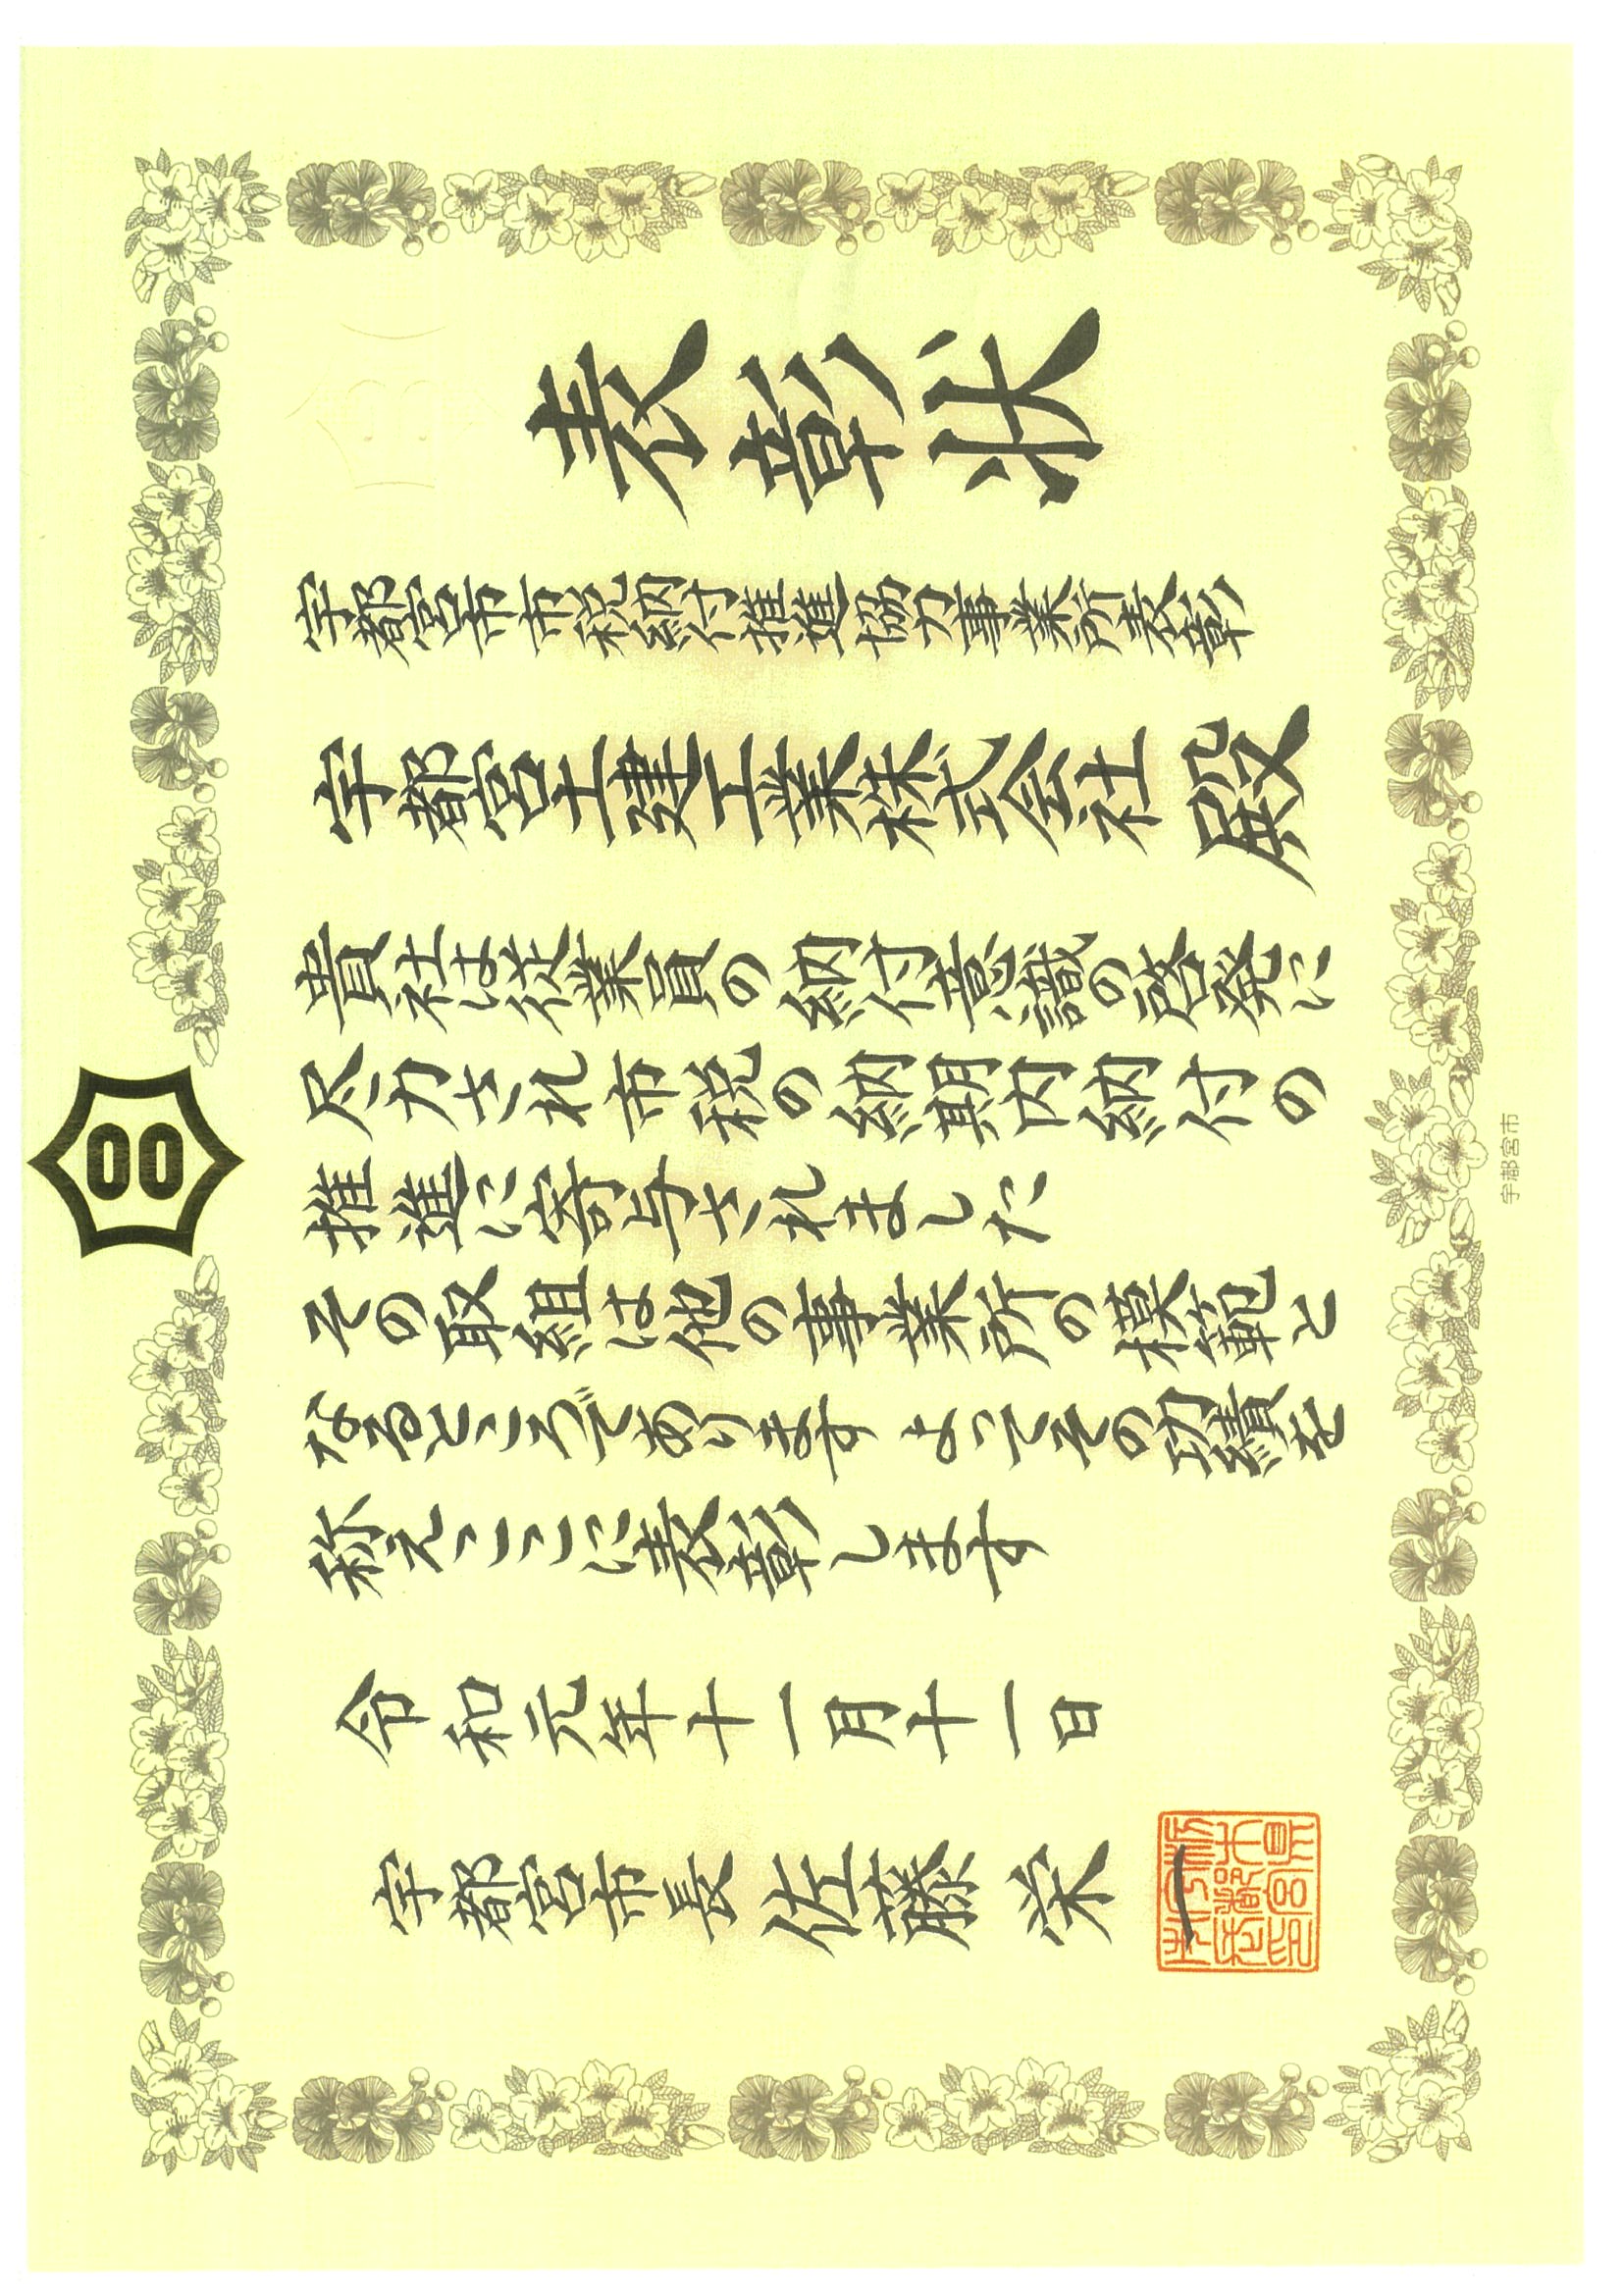 表彰状
宇都宮市市税納付推進協力事業所表彰
宇都宮土建工業株式会社 殿
貴社は従業員の納付意識の啓発に
尽力され市税の納期内納付の
推進に寄与されました
その取組は他の事業所の模範と
なるところであります よってその功績を
称えここに表彰します
令和元年十一月十一日
宇都宮市長 佐藤栄一
宇都宮市